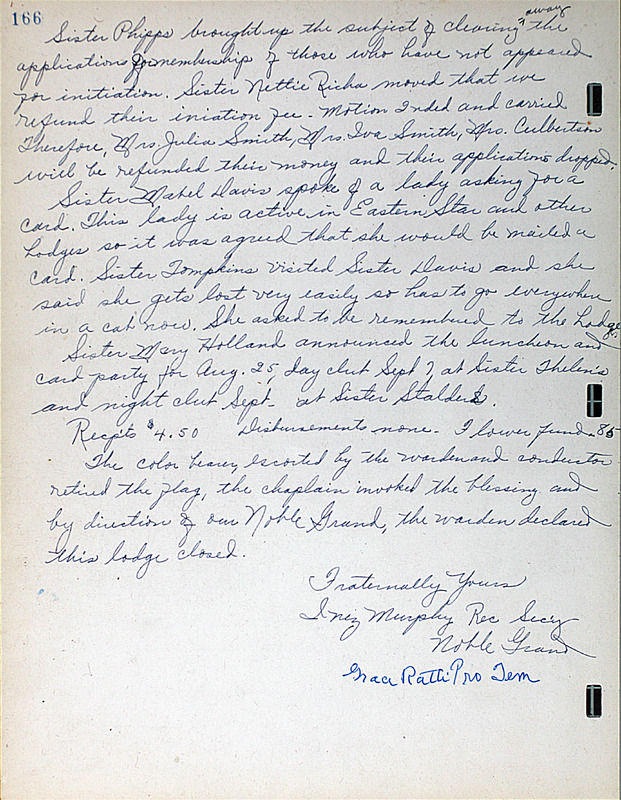 166
Sister Phipps brought up the subject of clearing away the
applications for membership of those who have not appeared
for initiation. Sister Nettie Richa moved that we
refund their iniation fee - Motion 2nded and carried
Therefore, Mrs. Julia Smith, Mrs. Iva Smith, Mrs. Culbertson
will be refunded their money and their applications dropped.
Sister Mabel Davis spoke of a lady asking for a
card. This lady is active in Eastern Star and other
Lodges so it was agreed that she would be mailed a
card. Sister Tompkins visited Sister Davis and she
said she gets lost very easily so has to go everywhere
in a cab now. She asked to be remembered to the Lodge.
Sister Mary Holland announced the luncheon and
card party for Aug. 25, day club Sept 7, at Sister Thelen's
and night club Sept - at Sister Stalders.
Recpts $4.50 Disbursements none - Flower fund .85
The color bearer, escorted by the warden and conductor
retired the flag, the chaplain invoked the blessing and
by direction of our Noble Grand, the warden declared
this lodge closed.
Fraternally Yours
Inez Murphy Rec Secy
Noble Grand
Grace Ratti Pro Tem